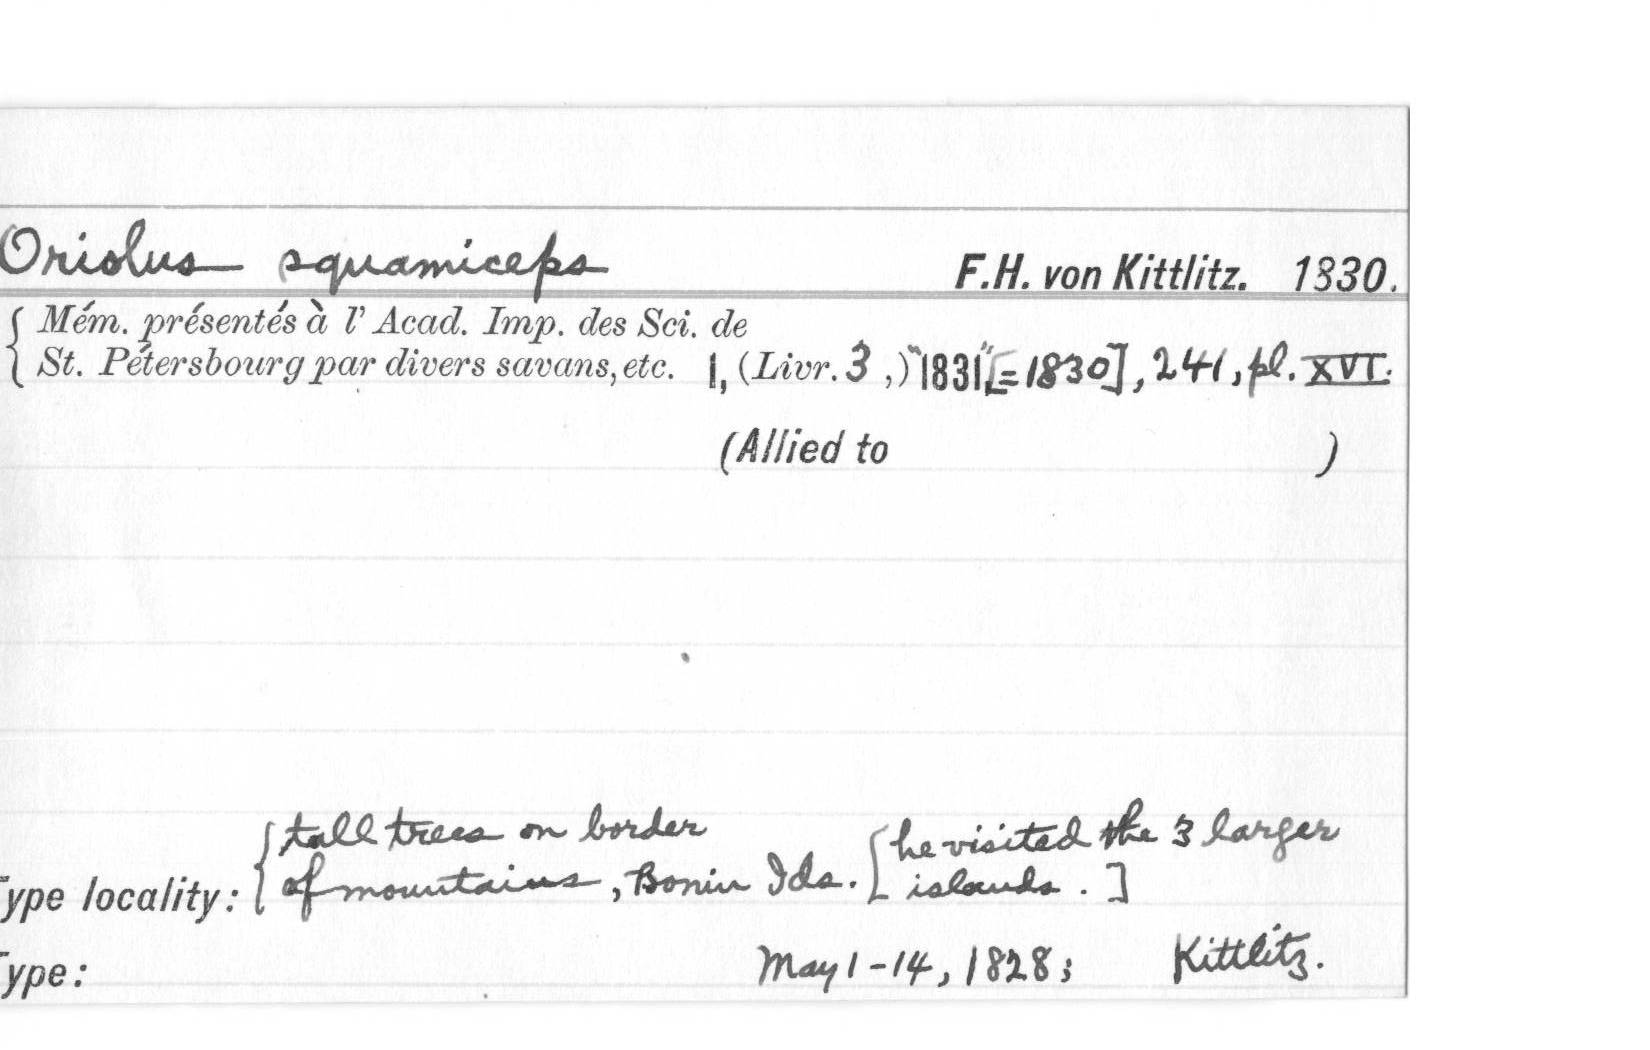 Oriolus squamiceps F.H. von Kittlitz. 1830.
{ Mém. présentés à l' Acad. Imp. des Sci. de
St. Pétersbourg par divers savans, etc. 1, (Livr. 3 ,) "1831" [=1830], 241, pl. XVI.
(Allied to )
{ tall trees on border [ he visited the 3 larger
ype locality: of mountains, Bonin Ids. islands . ]
ype: May 1-14, 1828; Kittlitz.